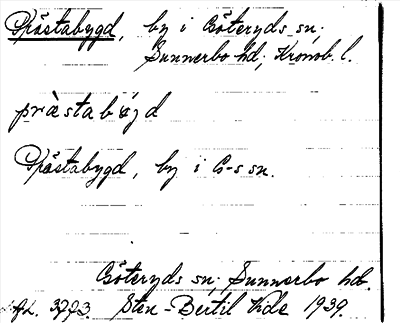 Pröstabygd, by i Göteryds sn.
Sunnerbo hd, Kronob. l.
prӕ̀stabýgd
Pröstabygd, by i G-s sn.
Göteryds sn, Sunnerbo hd.
3773. Sten-Bertil Vide 1939.